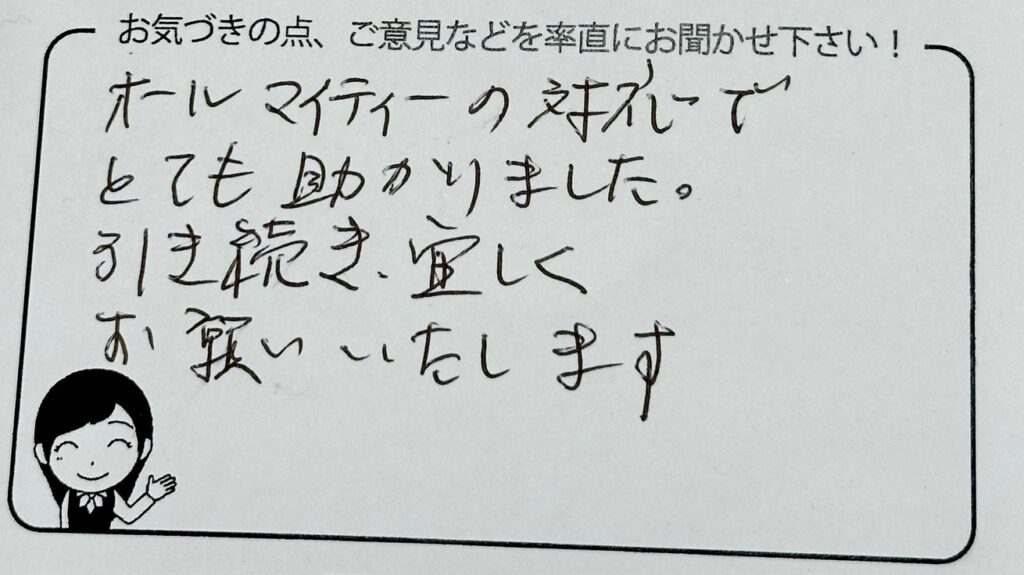 お気づきの点、ご意見などを率直にお聞かせ下さい！
オールマイティーの対応で
とても助かりました。
引き続き、宜しく
お願いいたします